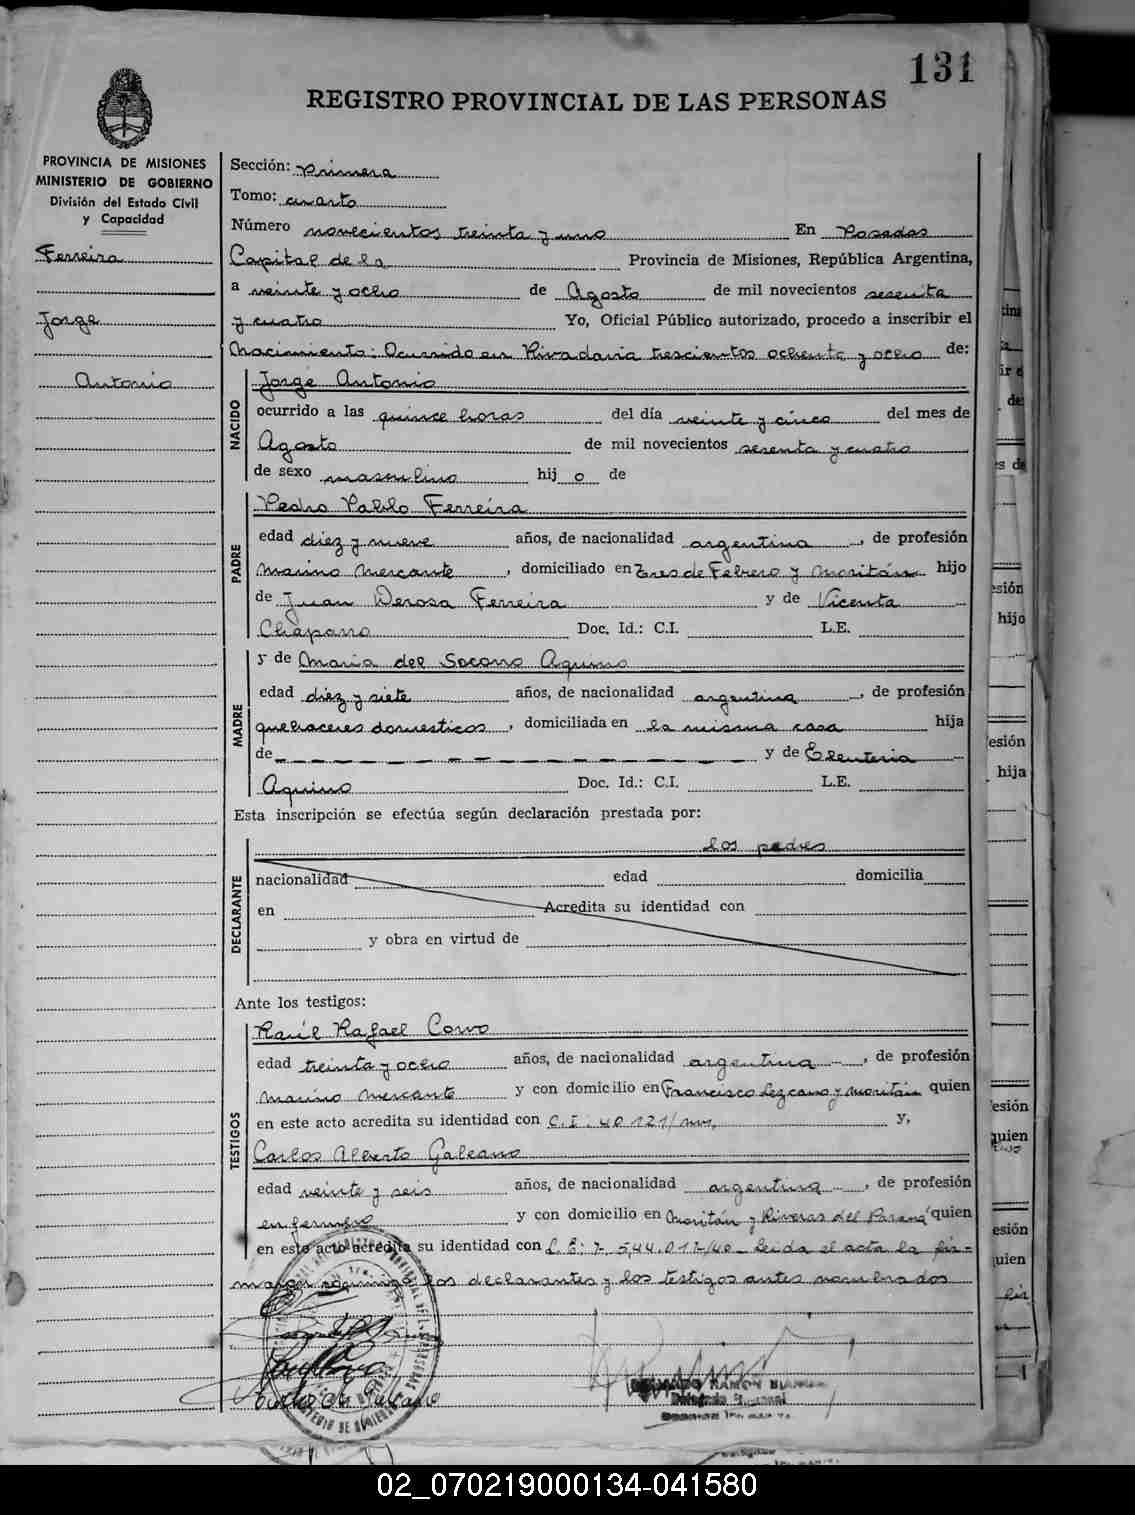 131
REGISTRO PROVINCIAL DE LAS PERSONAS
PROVINCIA DE MISIONES
MINISTERIO DE GOBIERNO
División del Estado Civil
y Capacidad
Ferreira
Jorge
Antonio
Sección: Primera
Tomo: cuarto
Número novecientos treinta y uno En Posadas
Capital de la Provincia de Misiones, República Argentina,
a veinte y ocho de Agosto de mil novecientos sesenta
y cuatro Yo, Oficial Público autorizado, procedo a inscribir el
Nacimiento: Ocurrido en Rivadavia trescientos ochenta y ocho de:
NACIDO
Jorge Antonio
ocurrido a las quince horas del día veinte y cinco del mes de
Agosto de mil novecientos sesenta y cuatro
de sexo masculino hij o de
PADRE
Pedro Pablo Ferreira
edad diez y nueve años, de nacionalidad argentina, de profesión
Marino Mercante, domiciliado en Tres de Febrero y Moritán hijo
de Juan Derosa Ferreira y de Vicenta
Chaparro Doc. Id.: C.I. L.E.
MADRE
y de María del Socorro Aquino
edad diez y siete años, de nacionalidad argentina, de profesión
quehaceres domesticos, domiciliada en la misma casa hija
de y de Eleuteria
Aquino Doc. Id.: C.I. L.E.
Esta inscripción se efectúa según declaración prestada por:
los padres
DECLARANTE
nacionalidad edad domicilia
en Acredita su identidad con
y obra en virtud de
Ante los testigos:
TESTIGOS
Raúl Rafael Corvo
edad treinta y ocho años, de nacionalidad argentina, de profesión
Marino Mercante y con domicilio en Francisco Lezcano y Moritán quien
en este acto acredita su identidad con C.I: 40121/mm, y,
Carlos Alberto Galeano
edad veinte y seis años, de nacionalidad argentina, de profesión
enfermero y con domicilio en Moritán y Riveras del Paraná quien
en este acto acredita su identidad con L.E: 7.544.017/40_ Leida el acta la fir-
man conmigo, los declarantes y los testigos antes nombrados
02_070219000134-041580